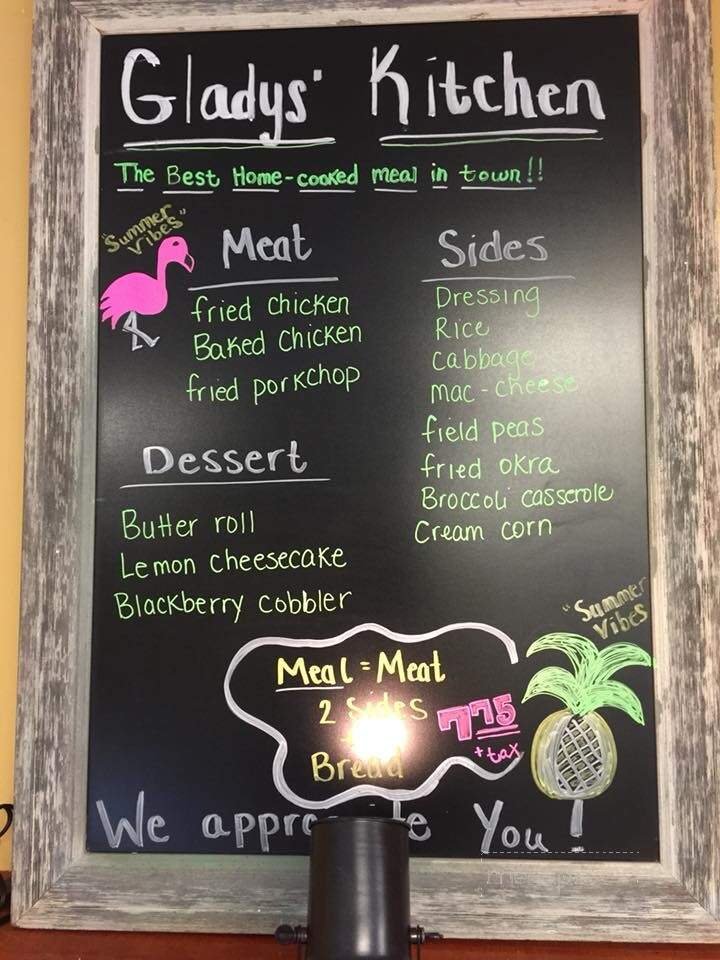 Gladys' Kitchen
The Best Home-cooked meal in town!!
"Summer
Vibes"
Meat
fried chicken
Baked Chicken
fried porkchop
Sides
Dressing
Rice
Cabbage
mac-cheese
field peas
fried okra
Broccoli casserole
Cream corn
Dessert
Butter roll
Lemon cheesecake
Blackberry cobbler
"Summer
Vibes
Meal = Meat
2 Sides
Bread
775
+ tax
We You!